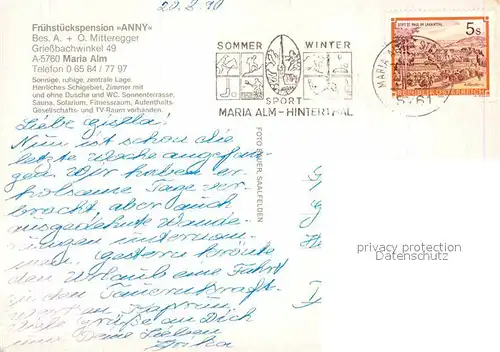 20.8.90
Frühstückspension »ANNY«
Bes. A. + O. Mitteregger
Grießbachwinkel 49
A-5760 Maria Alm
Telefon 0 65 84 / 77 97
Sonnige, ruhige, zentrale Lage.
Herrliches Schigebiet, Zimmer mit
und ohne Dusche und WC. Sonnenterrasse,
Sauna, Solarium, Fitnessraum, Aufenthalts-
Gesellschafts- und TV-Raum vorhanden.
SOMMER WINTER
SPORT
MARIA ALM – HINTERTHAL
STIFT ST. PAUL IM LAVANTTAL
5 S
REPUBLIK ÖSTERREICH
MARIA A
5761
FOTO BAUER, SAALFELDEN
Liebe Gisela!
Nun ist schon die
letzte Woche angefan-
gen. Wir haben er-
holsame Tage ver-
bracht, aber auch
ausgedehnte Wande-
rungen unternom-
men. Gestern krönte
den Urlaub eine Fahrt
zu den Tauernkraft-
werk an Kaprun.
Viele Grüße an Dich
und Deine Lieben
Erika
privacy protection
www.ak-ansichtskarten.de